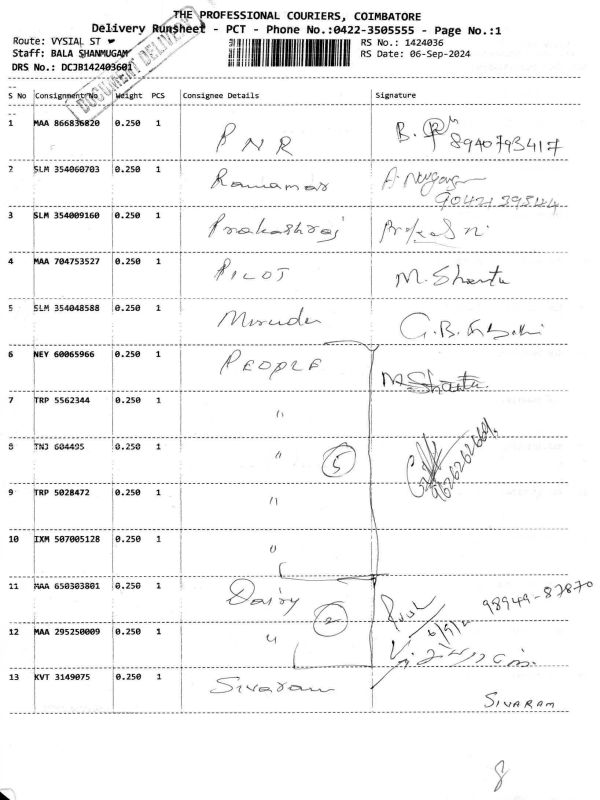 THE PROFESSIONAL COURIERS, COIMBATORE
Delivery Runsheet - PCT - Phone No.:0422-3505555 - Page No.:1
Route: VYSIAL ST
Staff: BALA SHANMUGAM
DRS No.: DCJB142403601
RS No.: 1424036
RS Date: 06-Sep-2024
DOCUMENT DELIVERY
S No Consignment No Weight PCS Consignee Details Signature
1 MAA 866836820 0.250 1 PNR B.
8940793417
2 SLM 354060703 0.250 1 Ramamar A.
3 SLM 354009160 0.250 1 Prakashraj
4 MAA 704753527 0.250 1 PILOT M. Shantu
5 SLM 354048588 0.250 1 G.B.
6 NEY 60065966 0.250 1 PEOPLE M. Shantu
7 TRP 5562344 0.250 1 "
8 TNJ 604495 0.250 1 " 5
9626262669
9 TRP 5028472 0.250 1 "
10 IXM 507005128 0.250 1 "
11 MAA 650303801 0.250 1 Dairy 2 98949-87870
12 MAA 295250009 0.250 1 "
13 KVT 3149075 0.250 1 Sivaram SIVARAM
8